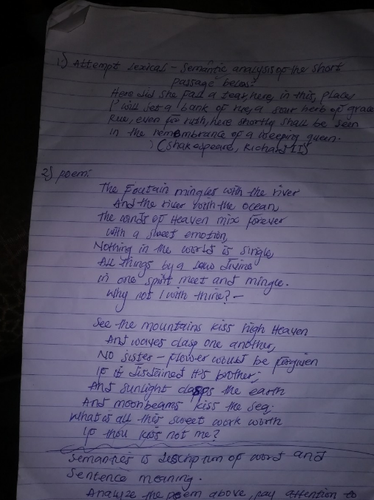 1) Attempt lexical - Semantic analysis of the short
passage below:
Here did she fall a tear, here, in this, place
I'll set a bank of rue, a sour herb of grace
Rue, even for ruth, here shortly shall be seen
in the remembrance of a weeping queen.
(Shakespeare, Richard II)
2) poem:
The Fountain mingles with the river
And the river with the ocean
The winds of Heaven mix forever
with a sweet emotion,
Nothing in the world is single
All things by a law divine
in one spirit meet and mingle.
Why not I with thine? -
See the mountains kiss high Heaven
And waves clasp one another,
NO Sister - flower would be forgiven
If it disdained its brother;
And sunlight clasps the earth
And moonbeams kiss the sea:
What is all this sweet work worth
If thou kiss not me?
Semantics is description of word and
Sentence meaning.
Analyze the poem above, pay attention to